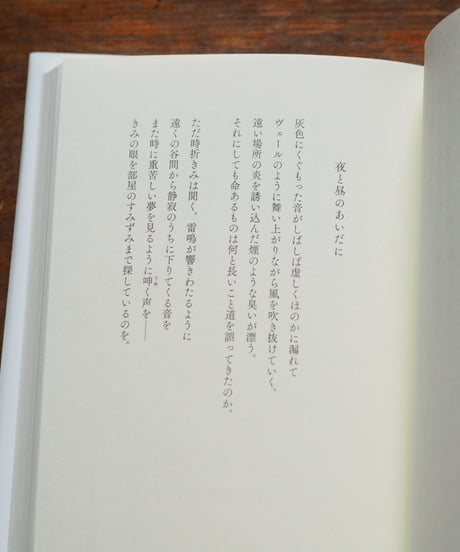 夜と昼のあいだに
灰色にくぐもった音がしばしば虚しくほのかに漏れて
ヴェールのように舞い上がりながら風を吹き抜けていく。
遠い場所の炎を誘い込んだ煙のような臭いが漂う。
それにしても命あるものは何と長いこと道を誤ってきたのか。
ただ時折きみは聞く。雷鳴が響きわたるように
遠くの谷間から静寂のうちに下りてくる音を
また時に重苦しい夢を見るように呻く声を――
きみの眼を部屋のすみずみまで探しているのを。